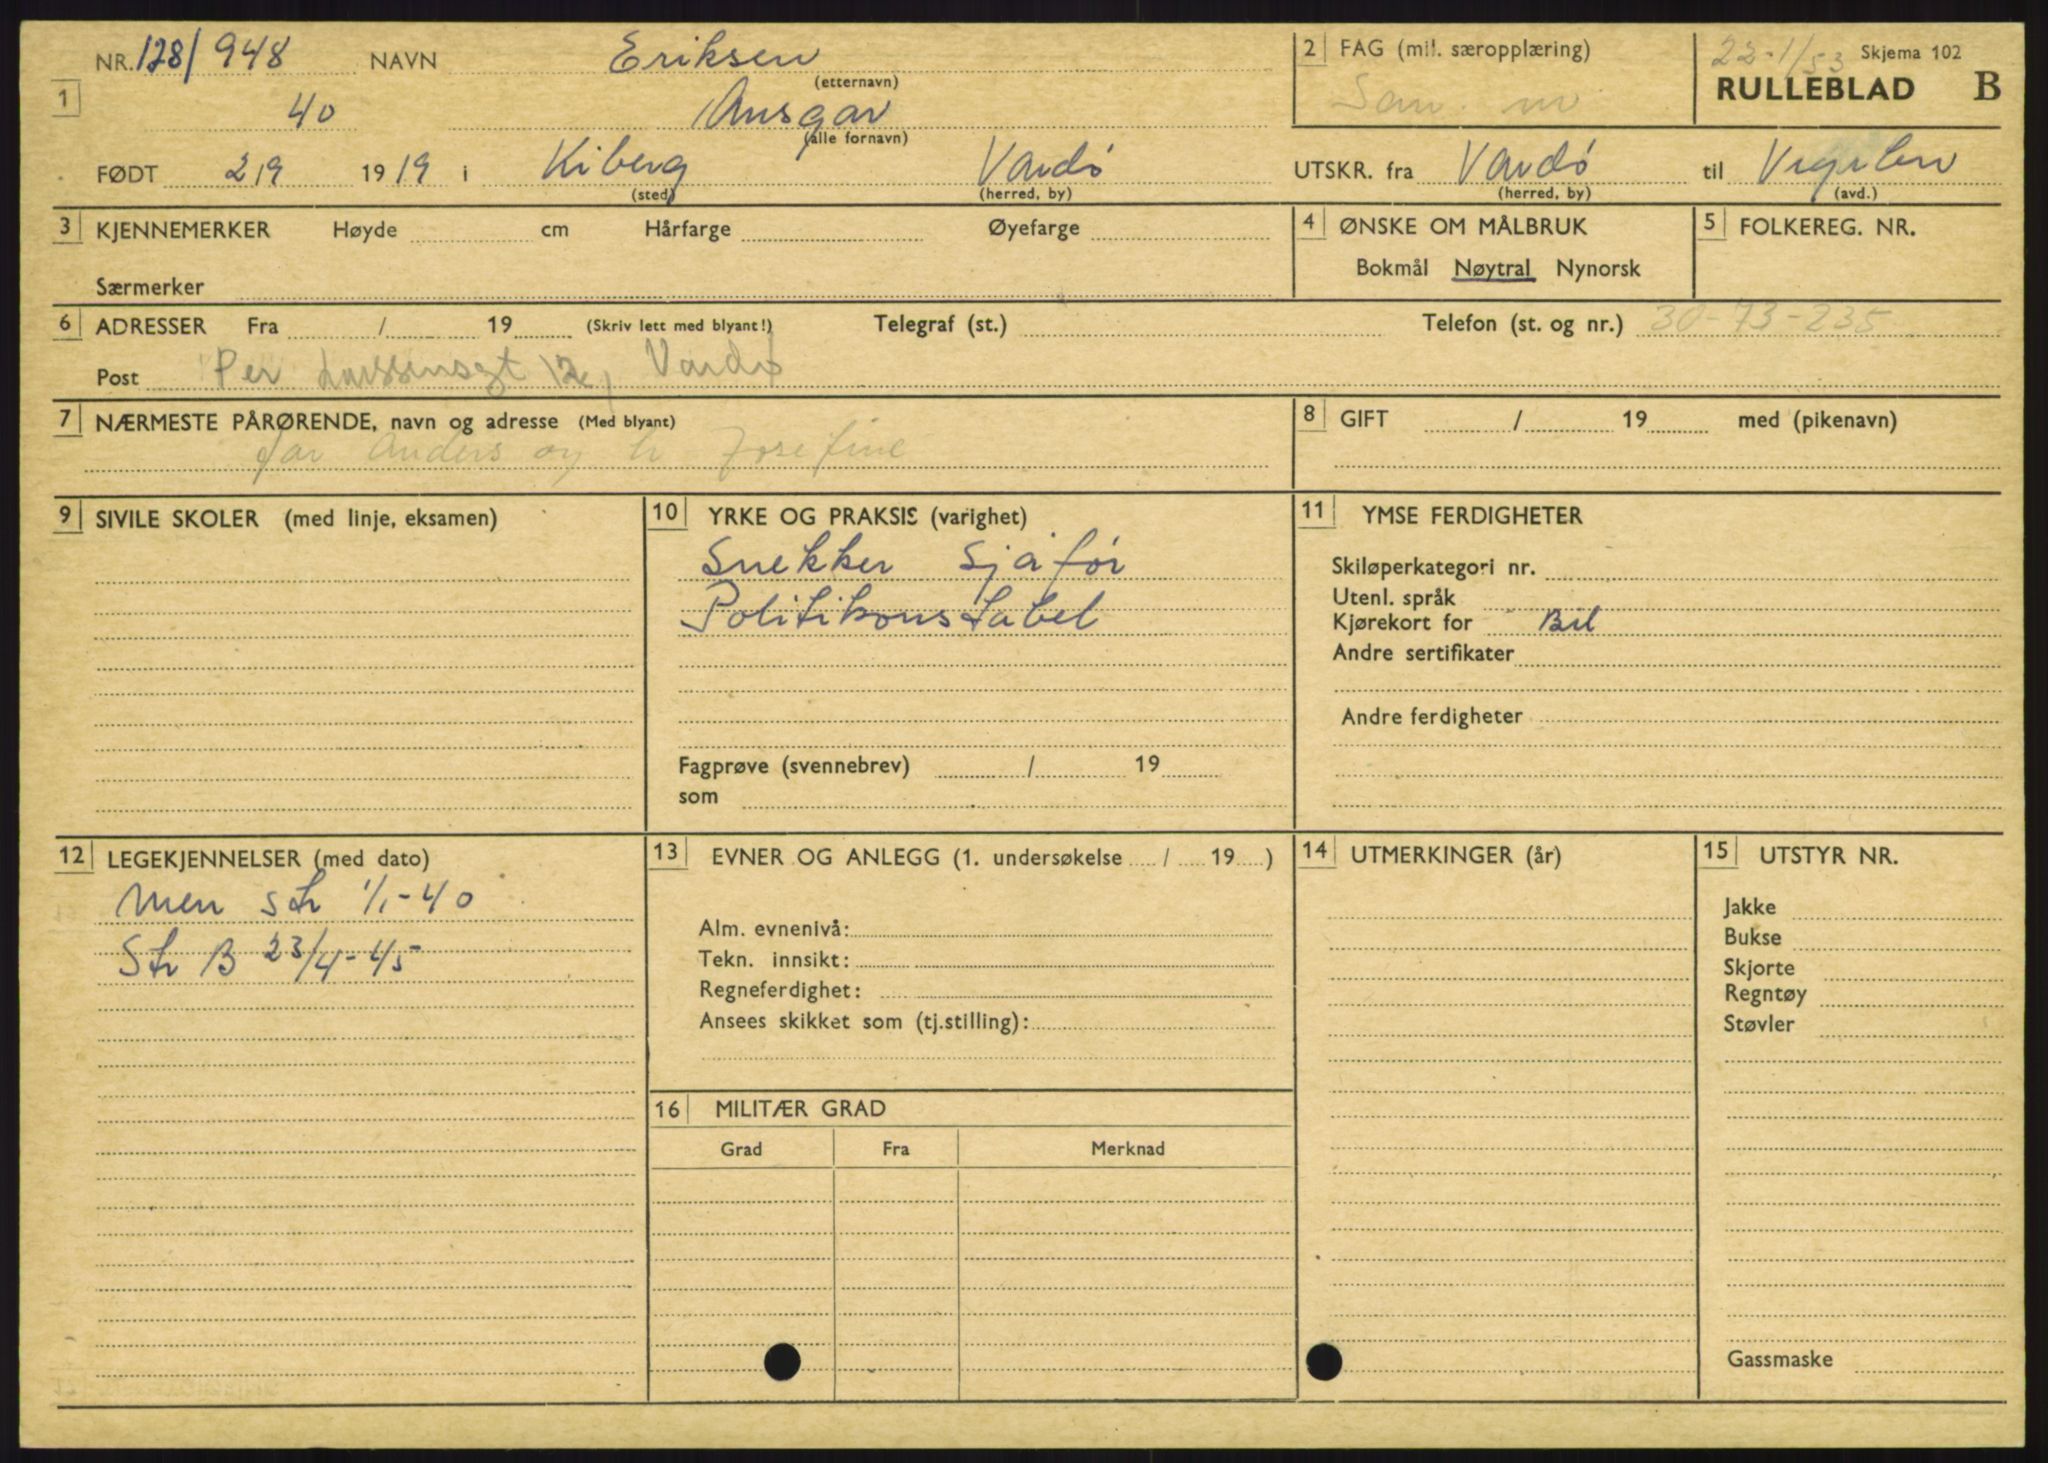 NR. 128/948 NAVN Eriksen 2 FAG (mil. særopplæring) 22-1/53 Skjema 102
(etternavn) San. m RULLEBLAD B
1 40 Ansgar
(alle fornavn)
FØDT 2/9 1919 i Kiberg Vardø UTSKR. fra Vardø til
(sted) (herred, by) (herred, by) (avd.)
3 KJENNEMERKER Høyde cm Hårfarge Øyefarge 4 ØNSKE OM MÅLBRUK 5 FOLKEREG. NR.
Bokmål Nøytral Nynorsk
Særmerker
6 ADRESSER Fra / 19 (Skriv lett med blyant!) Telegraf (st.) Telefon (st. og nr.) 30-73-235
Post Per Larssensgt 12, Vardø
7 NÆRMESTE PÅRØRENDE, navn og adresse (Med blyant) 8 GIFT / 19 med (pikenavn)
far Anders og h Josefine
9 SIVILE SKOLER (med linje, eksamen) 10 YRKE OG PRAKSIS (varighet) 11 YMSE FERDIGHETER
Snekker Sjåfør Skiløperkategori nr.
Politikonstabel Utenl. språk
Kjørekort for Bil
Andre sertifikater
Andre ferdigheter
Fagprøve (svennebrev) / 19
som
12 LEGEKJENNELSER (med dato) 13 EVNER OG ANLEGG (1. undersøkelse / 19 ) 14 UTMERKINGER (år) 15 UTSTYR NR.
Men str 1/1-40 Jakke
Alm. evnenivå: Bukse
Str B 23/4-45 Tekn. innsikt: Skjorte
Regneferdighet: Regntøy
Ansees skikket som (tj.stilling): Støvler
16 MILITÆR GRAD
Grad Fra Merknad
Gassmaske